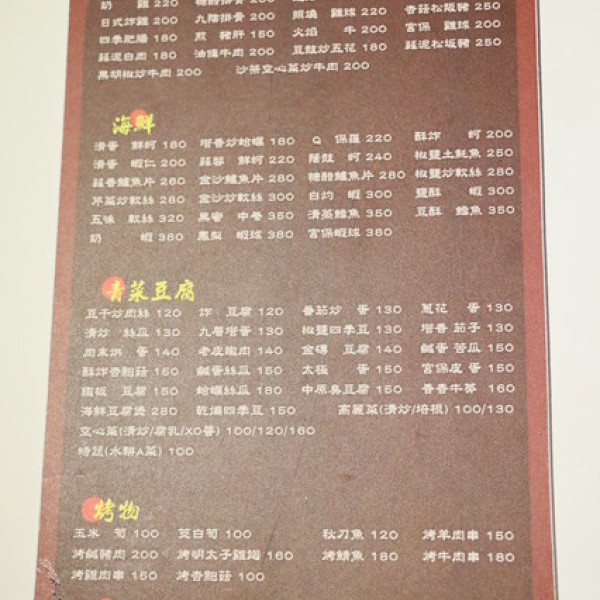 奶 雞 220 排骨 200 220 250
日式炸雞 200 九層排骨 200 照燒 雞球 220 香菇松阪豬 250
四季肥腸 180 煎 豬肝 150 火焰 牛 200 宮保 雞球 200
蒜泥白肉 180 油條牛肉 200 豆豉炒五花 180 蒜泥松坂豬 250
黑胡椒炒牛肉 200 沙茶空心菜炒牛肉 200
海鮮
清蒸 鮮蚵 180 塔香炒蛤蠣 180 Q 保羅 220 酥炸 蚵 200
清蒸 蝦仁 200 蒜蓉 鮮蚵 220 蔭豉 蚵 240 椒鹽土魠魚 250
蒜香鱸魚片 260 金沙鱸魚片 280 糖醋鱸魚片 280 椒鹽炒軟絲 280
芹菜炒軟絲 280 金沙炒軟絲 300 白灼 蝦 300 鹽酥 蝦 300
五味 軟絲 320 黑蜜 中卷 350 清蒸鱈魚 350 豆酥 鱈魚 350
奶 蝦 380 鳳梨 蝦球 380 宮保蝦球 380
青菜豆腐
豆干炒肉絲 120 炸 豆腐 120 番茄炒 蛋 130 蔥花 蛋 130
清炒 絲瓜 130 九層塔蛋 130 椒鹽四季豆 130 塔香 茄子 130
肉末烘 蛋 140 老皮嫩肉 140 金磚 豆腐 140 鹹蛋 苦瓜 150
酥炸杏鮑菇 150 鹹蛋絲瓜 150 太極 蛋 150 宮保皮蛋 150
鐵板 豆腐 150 蛤蠣絲瓜 180 中原臭豆腐 150 香香牛蒡 160
海鮮豆腐煲 280 乾煸四季豆 150 高麗菜(清炒/培根) 100/130
空心菜(清炒/腐乳/XO醬) 100/120/160
時蔬(水耕A菜) 100
烤物
玉米 筍 100 筊白筍 100 秋刀魚 120 烤羊肉串 150
烤鹹豬肉 200 烤明太子雞翅 160 烤鯖魚 180 烤牛肉串 180
烤雞肉串 150 烤杏鮑菇 100